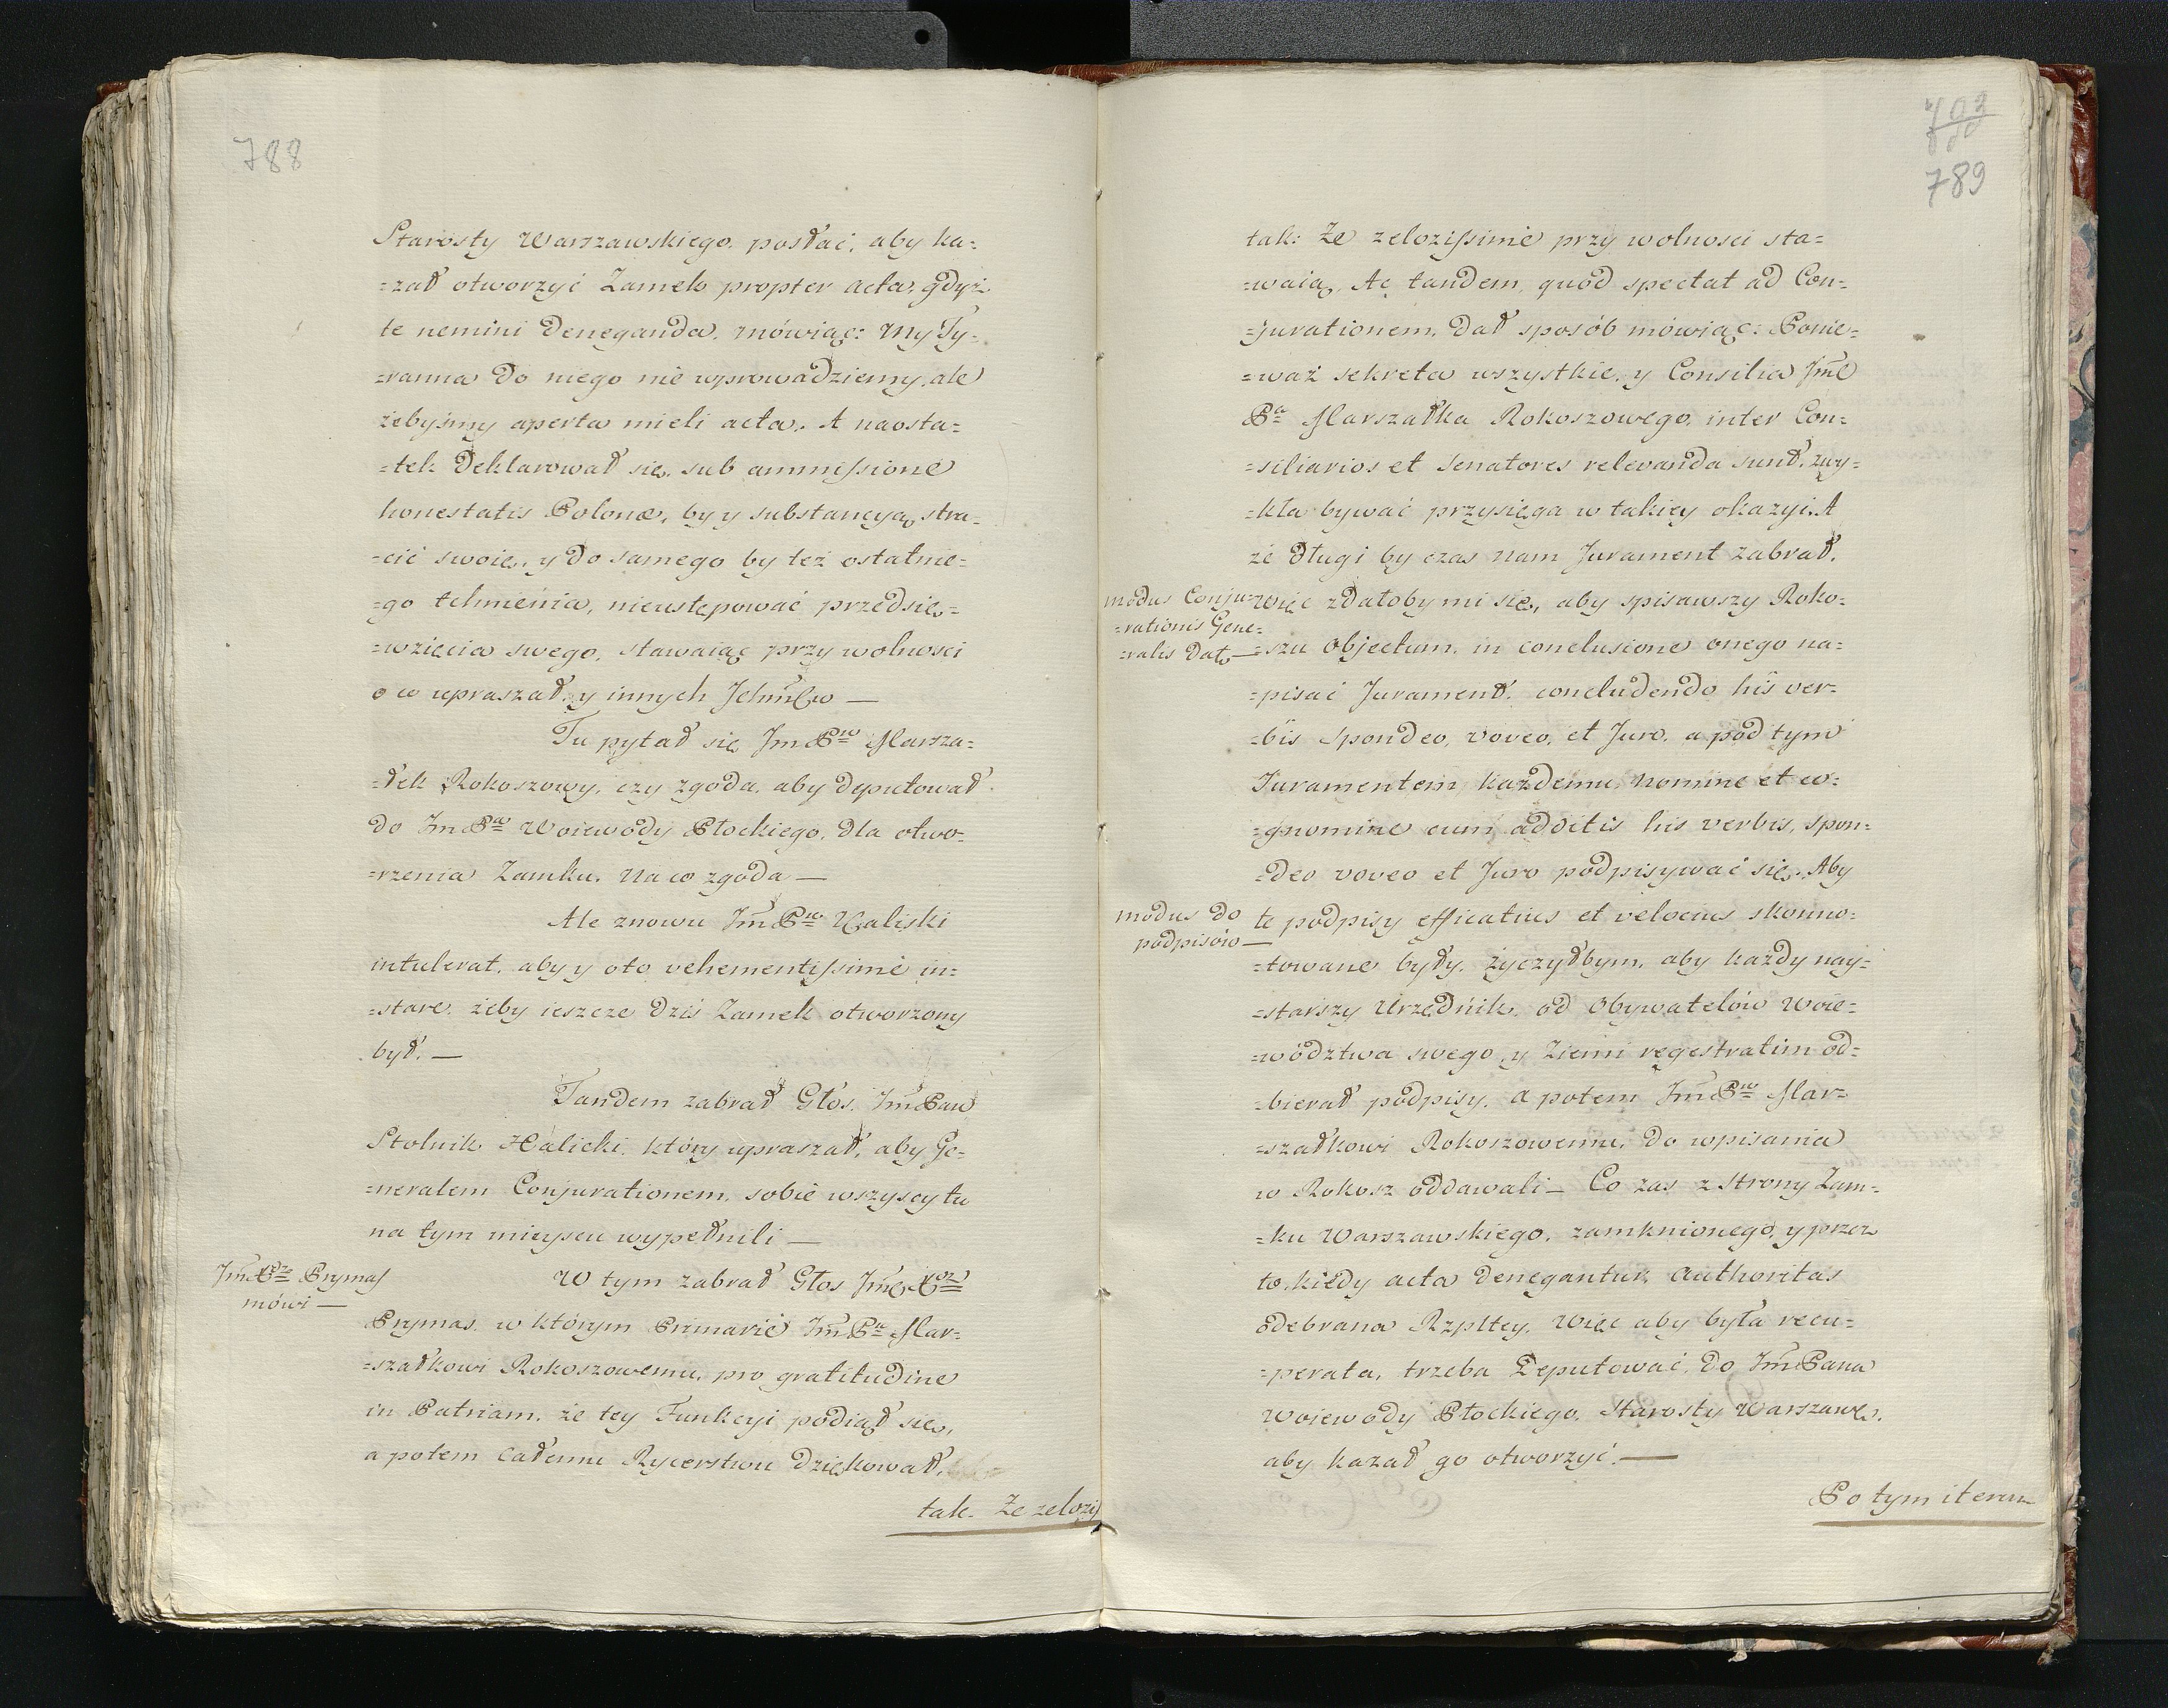 788
Starosty Warszawskiego, posłać, aby ka=
=zał otworzyć Zamek propter acta, gdyż
te nemini deneganda, mówiąc: My Ty=
=ranna do niego nie wprowadziemy, ale
żebyśmy aperta mieli acta. A naosta=
=tek deklarował się, sub ammissione
honestatis Polonæ, by y substancyą stra=
=cić swoię, y do samego by też ostatnie=
=go tchnienia, nieustępować przedsię=
=wzięcia swego, stawaiąc przy wolnosci
o co upraszał, y innych Jchmśćw —
Tu pytał się Jm Pn Marsza=
=łek Rokoszowy, czy zgoda, aby deputował
do Jm Pa Woiewody Płockiego, dla otwo=
=rzenia Zamku. Na co zgoda —
Ale znowu Jm Pn Kaliski
intulerat, aby y oto vehementissimè in=
=stare, żeby ieszcze dziś Zamek otworzony
był. —
Tandem zabrał Głos, Jm Pan
Stolnik Halicki, który upraszał, aby Ge=
=neralem Conjurationem, sobie wszyscy tu
na tym mieyscu wypełnili —
Jm Xdz Prymas
mówi —
W tym zabrał Głos Jmć Xdz
Prymas, w którym Primariè Jm Pu Mar=
=szałkowi Rokoszowemu, pro gratitudine
in Patriam, że tey Funkcyi podiął się,
a potem całemu Rycerstwu dziękował,
tak. Ze zelozis
793
789
tak: Ze zelozissimè przy wolnosci sta=
=waią. At tandem, quod spectat ad Con=
=jurationem, dał sposób mówiąc: Ponie=
=waż sekreta wszystkie, y Consilia Jmć
Pa Marszałka Rokoszowego, inter Con=
=siliarios et Senatores relevanda sunt, zwy=
=kła bywać przysięga w takiey okazyi. A
że długi by czas nam Jurament zabrał,
modus Conju=
=rationis Gene=
=ralis Dat —
więc zdałoby mi się, aby spisawszy Roko=
=szu Objectum, in conclusione onego na=
=pisać Jurament, concludendo his ver=
=bis Spondeo, voveo, et Juro, a pod tym
Juramentem, każdemu nomine et co=
=gnomine cum additis his verbis, spon=
=deo voveo et Juro podpisywać się. Aby
modus do
podpisów —
te podpisy efficatius et velocius skonno=
=towane były, życzyłbym, aby każdy nay=
=starszy Urzędnik, od Obywatelów Woie=
=wództwa swego, y Ziemi regestratim od=
=bierał podpisy, a potem Jm Pu Mar=
=szałkowi Rokoszowemu, do wpisania
w Rokosz oddawali — Co zas z strony Zam=
=ku Warszawskiego, zamknionego, y przez
to, kiedy acta denegantur, Authoritas
odebrana Rzpltey, więc aby była recu=
=perata, trzeba Deputować, do Jm Pana
Woiewody Płockiego, Starosty Warszaws,
aby kazał go otworzyć. —
Po tym iterum